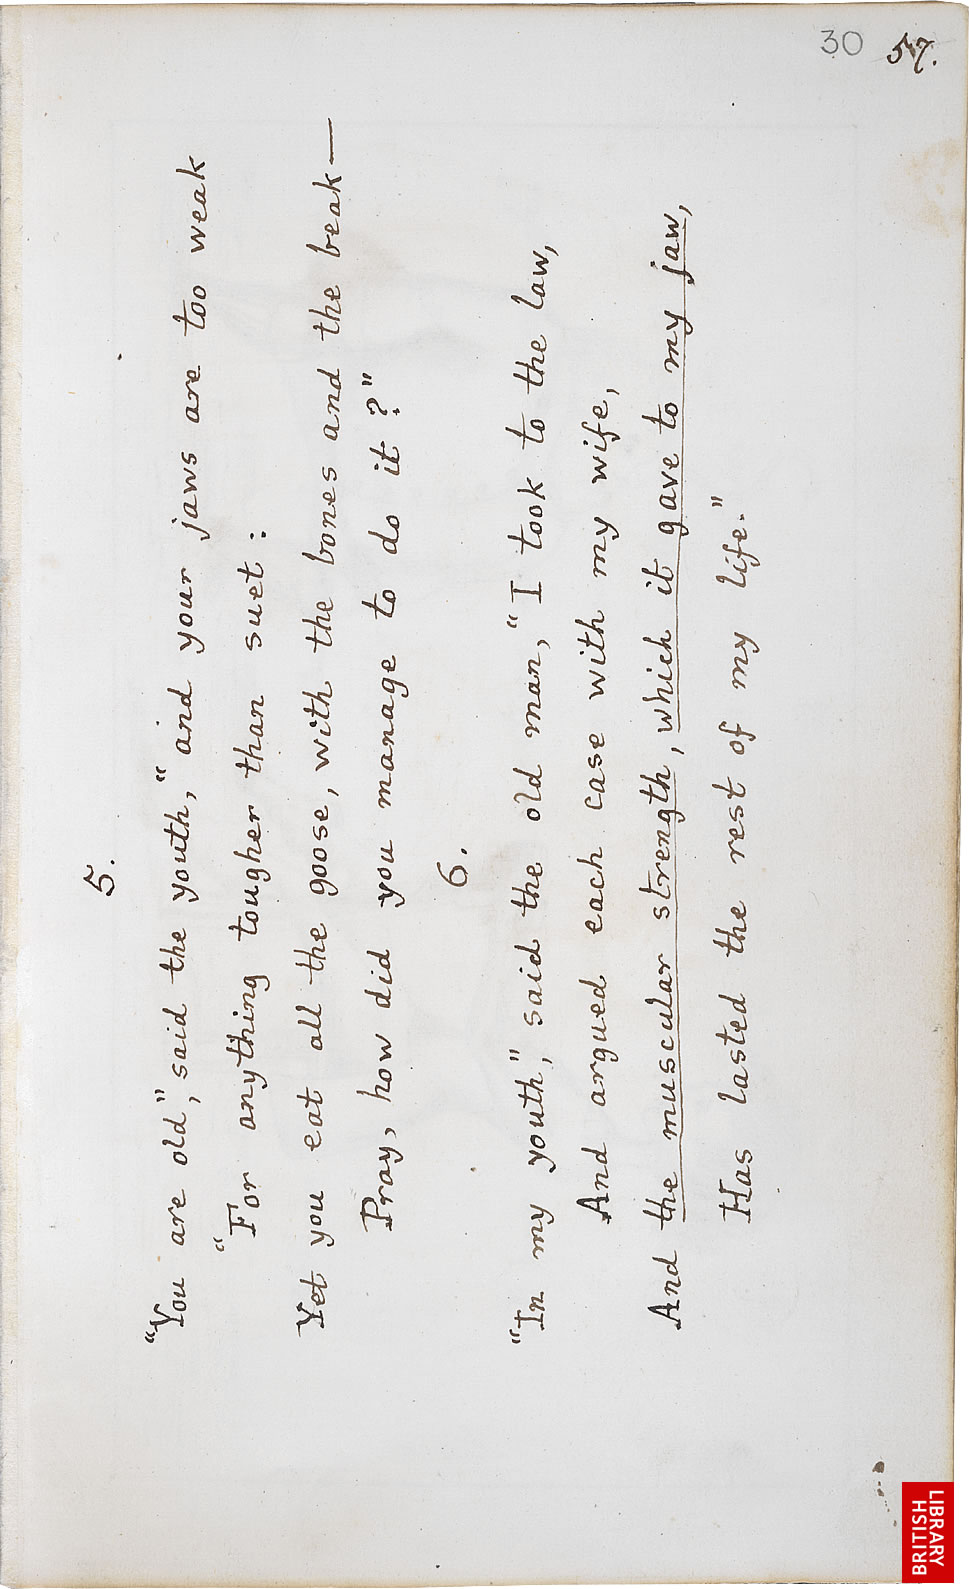 30 57.
5.
"You are old," said the youth, "and your jaws are too weak
"For anything tougher than suet:
Yet you eat all the goose, with the bones and the beak—
Pray, how did you manage to do it?"
6.
"In my youth," said the old man, "I took to the law,
And argued each case with my wife,
And the muscular strength, which it gave to my jaw,
Has lasted the rest of my life."
BRITISH
LIBRARY